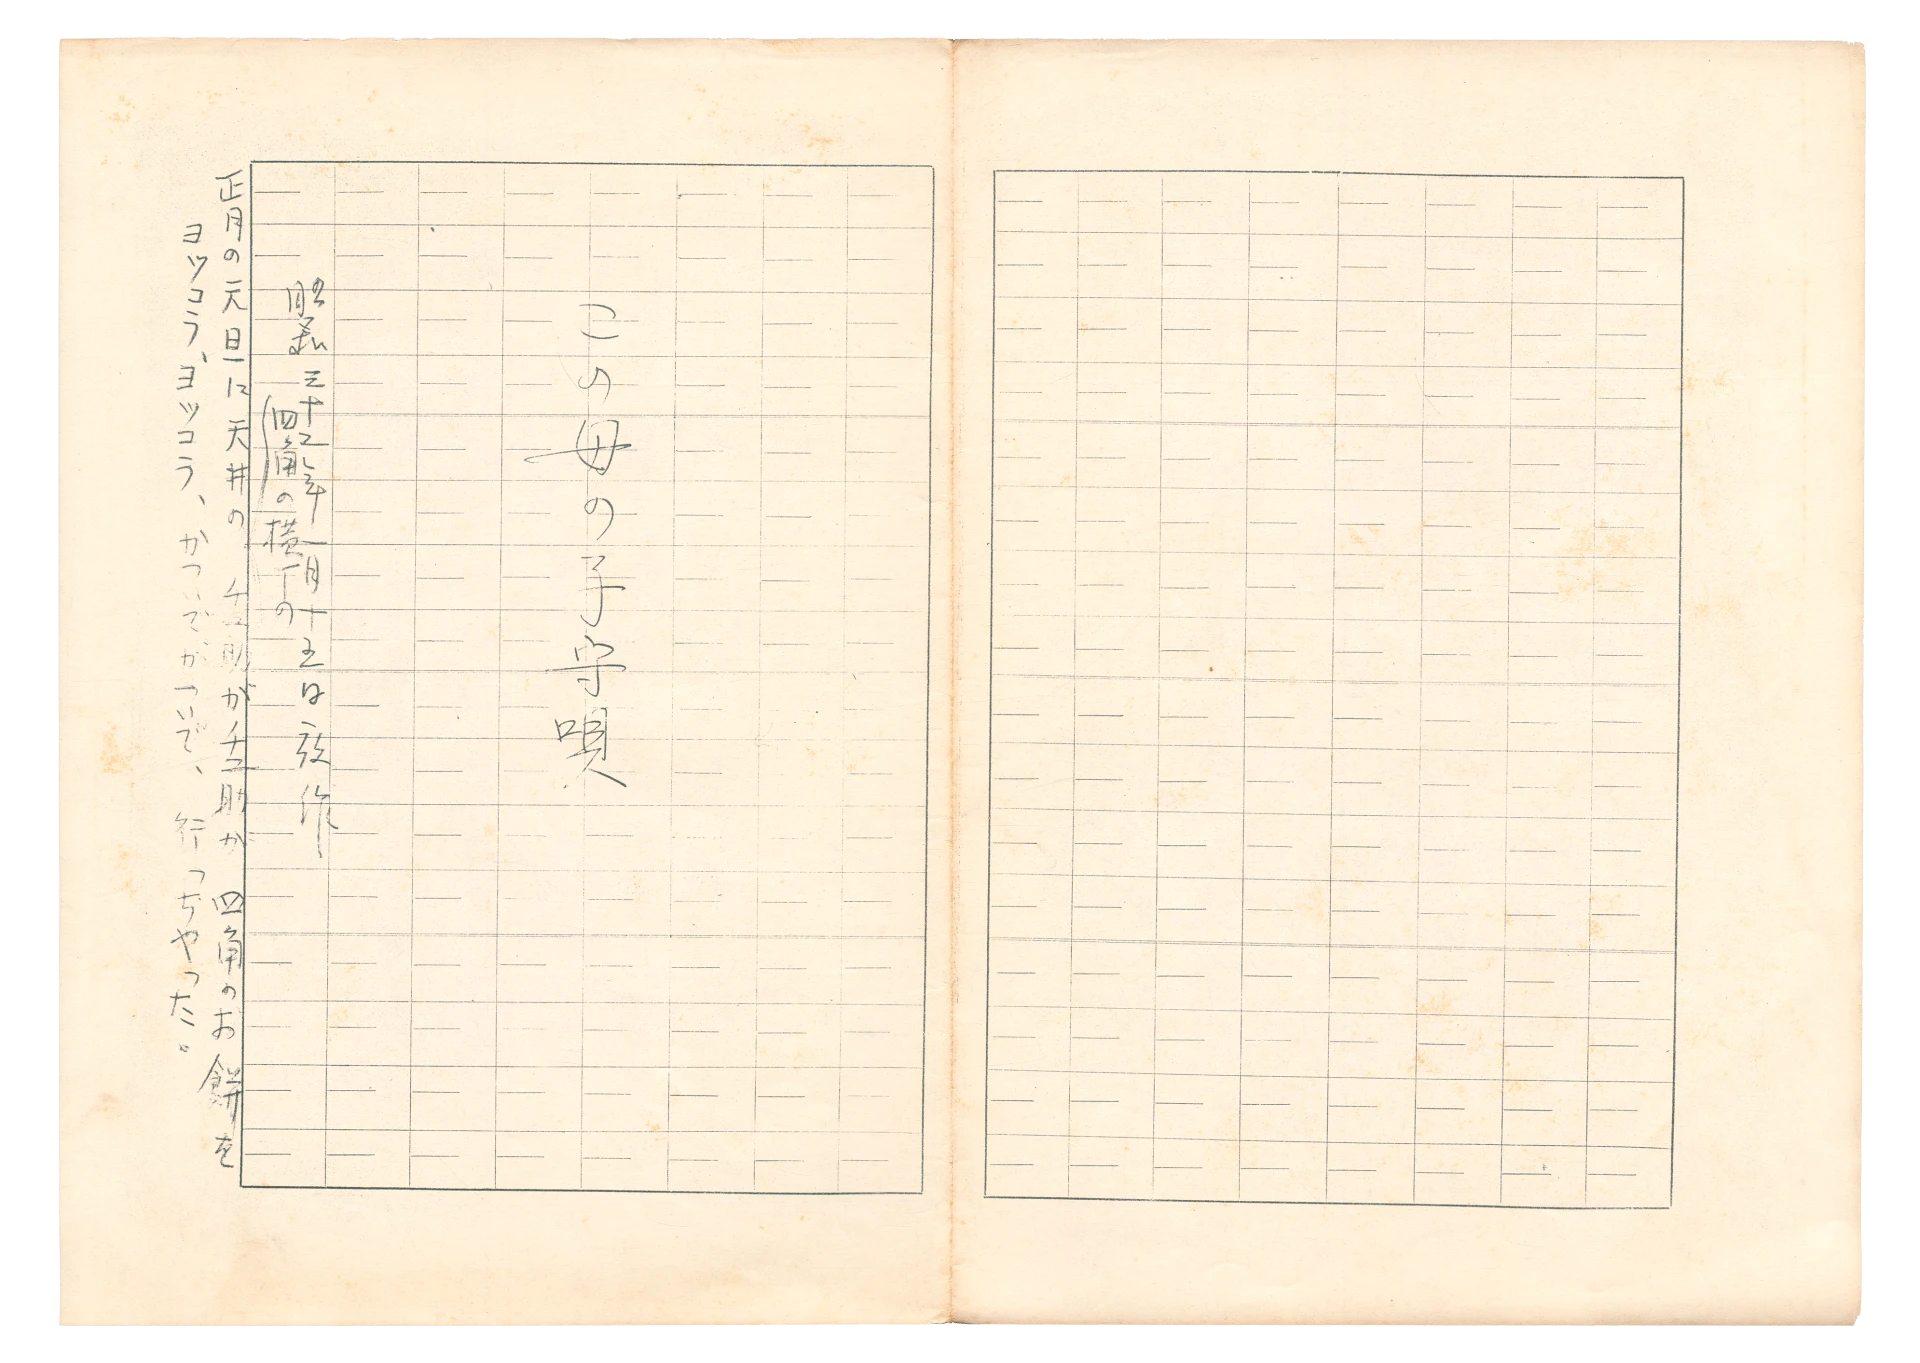 この母の子守唄
昭和三十二年一月十五日 作
(四角の横丁の
正月の元旦に天井の チユ助がチユ助が 四角のお餅を
ヨツコラ、ヨツコラ、かついでかついで、行っちやった。